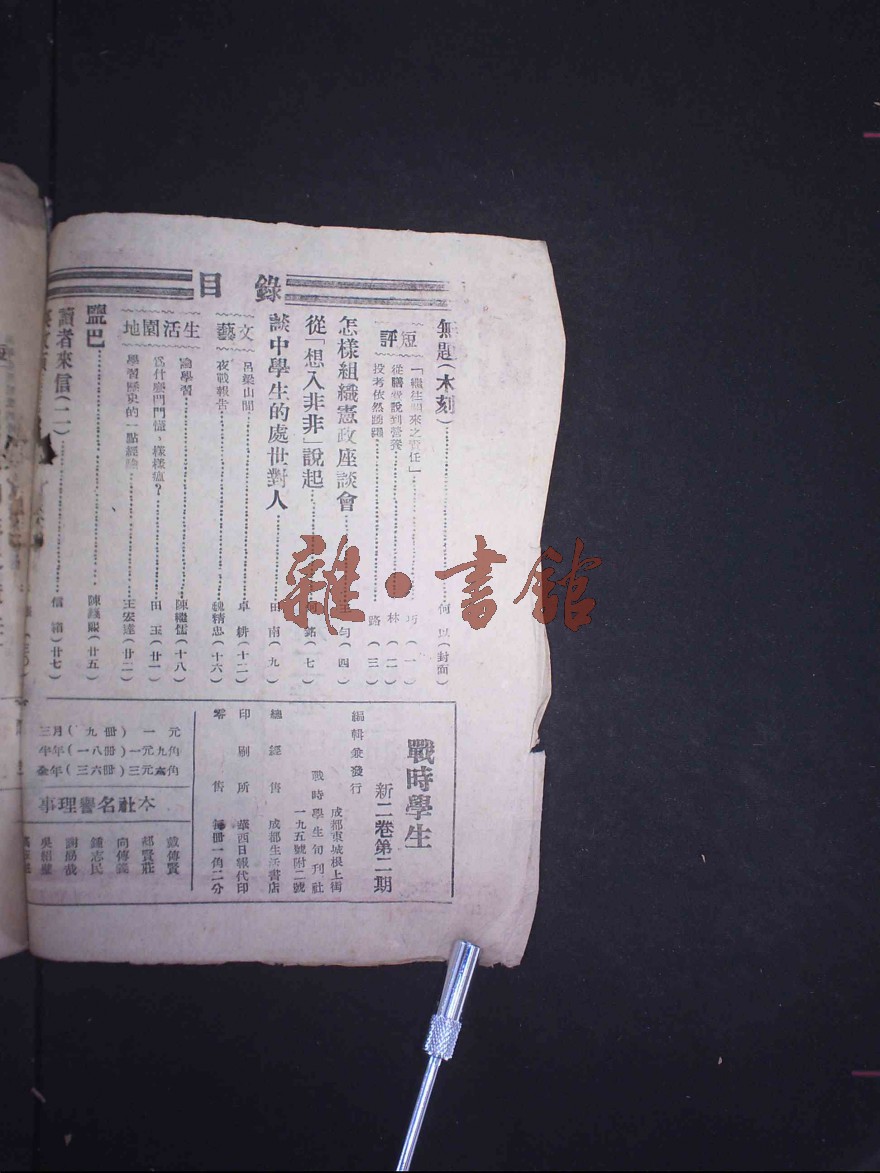 目錄
無題(木刻)……何以(封面)
短評
「繼往開來之責任」……巧(一)
從膳費說到營養……林(二)
投考依然踴躍……路(三)
怎樣組織憲政座談會……王勻(四)
從「想入非非」說起……銘(七)
談中學生的處世對人……田南(九)
文藝
呂梁山間……卓耕(十二)
夜戰報告……魏精忠(十六)
生活園地
論學習……陳繼儒(十八)
爲什麽門門懂、樣樣瘟?……田玉(廿一)
學習歷史的一點經驗……王宏達(廿二)
鹽巴……陳(廿五)
讀者來信(二)……信箱(廿七)
戰時學生
新二卷第二期
編輯兼發行
成都東城根上街
戰時學生旬刊社
一九五號附二號
總經售 成都生活書店
印刷所 華西日報代印
零售 每冊一角二分
三月(九冊)一元
半年(一八冊)一元九角
全年(三六冊)三元六角
本社名譽理事
戴傳賢
郝賢莊
向傳義
鍾志民
謝勗哉
吳組緗
雜·書館